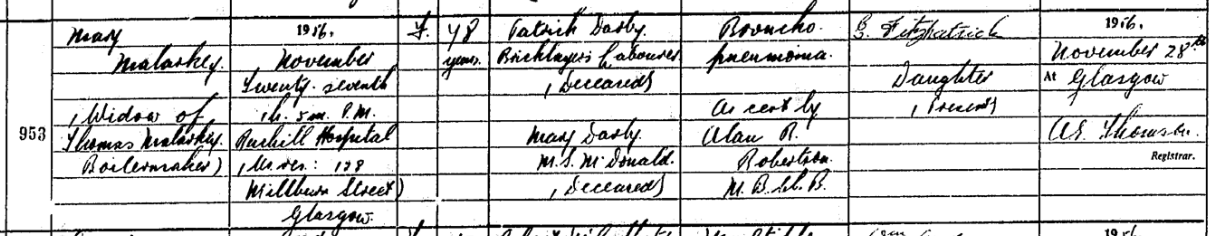 953
Mary
Malaskey.
(Widow of
Thomas Malaskey
Boilermaker)
1956.
November
Twenty-seventh
1h. 5m. P.M.
Ruchill Hospital
(Usres: 128
Millburn Street)
Glasgow.
F.
48
years.
Patrick Darby.
Bricklayer's Labourer
(Deceased)
Mary Darby.
M.S. McDonald.
(Deceased)
Broncho.
pneumonia.
As cert by
Alan R.
Robertson
M.B. Ch.B.
Fitzpatrick
Daughter
(Present)
1956.
November 28th
At Glasgow
Thomson.
Registrar.
1956